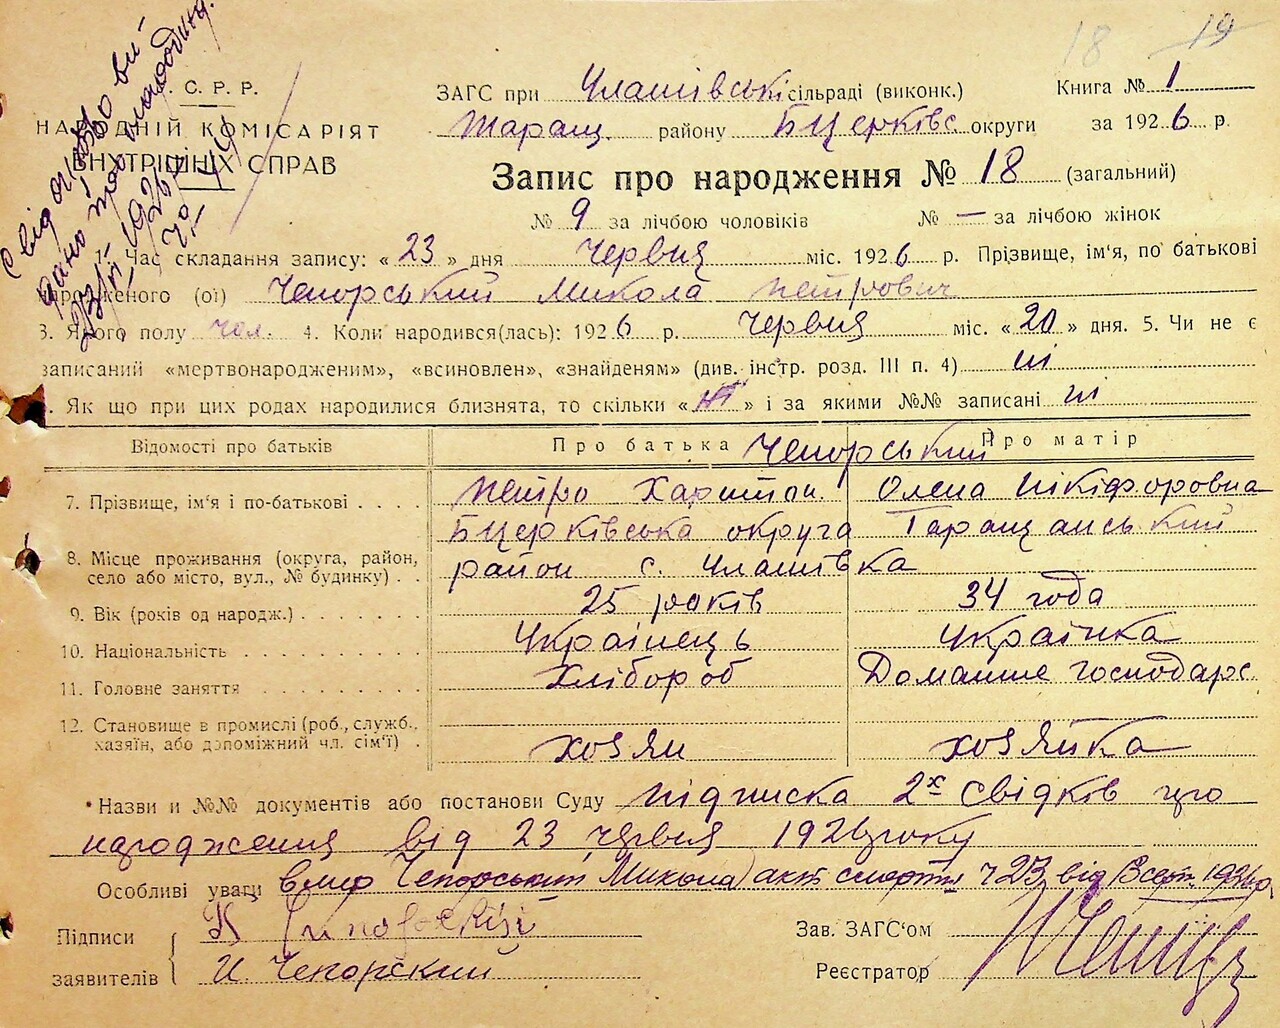 18 19
Свідоцтво ви-
дано про народжен.
С. Р. Р.
НАРОДНІЙ КОМІСАРІЯТ
ВНУТРІШНІХ СПРАВ
ЗАГС при Улашівські сільраді (виконк.) Книга № 1
Таращ. району БЦерківс округи за 1926 р.
Запис про народження № 18 (загальний)
№ 9 за лічбою чоловіків № — за лічбою жінок
1. Час складання запису: « 23 » дня Червця міс. 1926 р. Прізвище, ім'я, по батькові
народженого (ої) Чепорський Микола Петрович
3. Якого полу чол. 4. Коли народився(лась): 1926 р. Червця міс. « 20 » дня. 5. Чи не є
записаний «мертвонародженим», «всиновлен», «знайденям» (див. інстр. розд. III п. 4) ні
Як що при цих родах народилися близнята, то скільки « » і за якими №№ записані ні
Відомості про батьків Про батька Про матір
Чепорський
7. Прізвище, ім'я і по-батькові Петро Харитон. Олена Нікіфоровна
8. Місце проживання (округа, район, село або місто, вул., № будинку) БЦерківська округа Таращанський
район с. Улашівка
9. Вік (років од народж.) 25 років 34 года
10. Національність Українець Українка
11. Головне заняття Хлібороб Домашне господарс
12. Становище в промислі (роб., служб., хазяїн, або допоміжний чл. сім'ї) хозяин хозяйка
Назви и №№ документів або постанови Суду підписка 2х свідків про
народження від 23 червця 1926 року
Особливі уваги вмер Чепорський Микола акт смерти ч 23 від
Підписи заявителів
И. Чепорский
Зав. ЗАГС'ом
Реєстратор